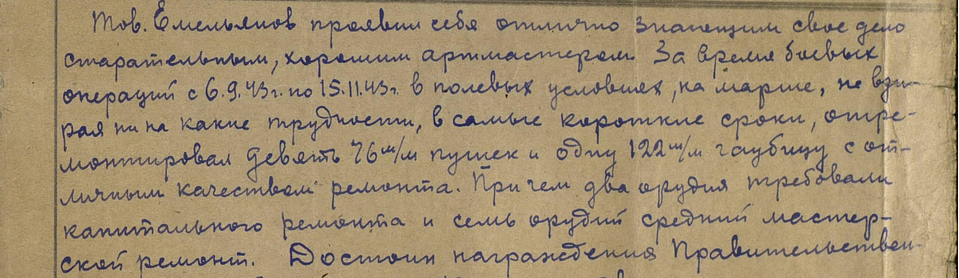 Тов. Емельянов проявил себя отлично знающим свое дело
старательным, хорошим артмастером. За время боевых
операций с 6.9.43г. по 15.11.43г. в полевых условиях, на марше, не взи-
рая ни на какие трудности, в самые короткие сроки, отре-
монтировал девять 76 м/м пушек и одну 122 м/м гаубицу с от-
личным качеством ремонта. При чем два орудия требовали
капитального ремонта и семь орудий средний мастер-
ской ремонт. Достоин награждения Правительствен-